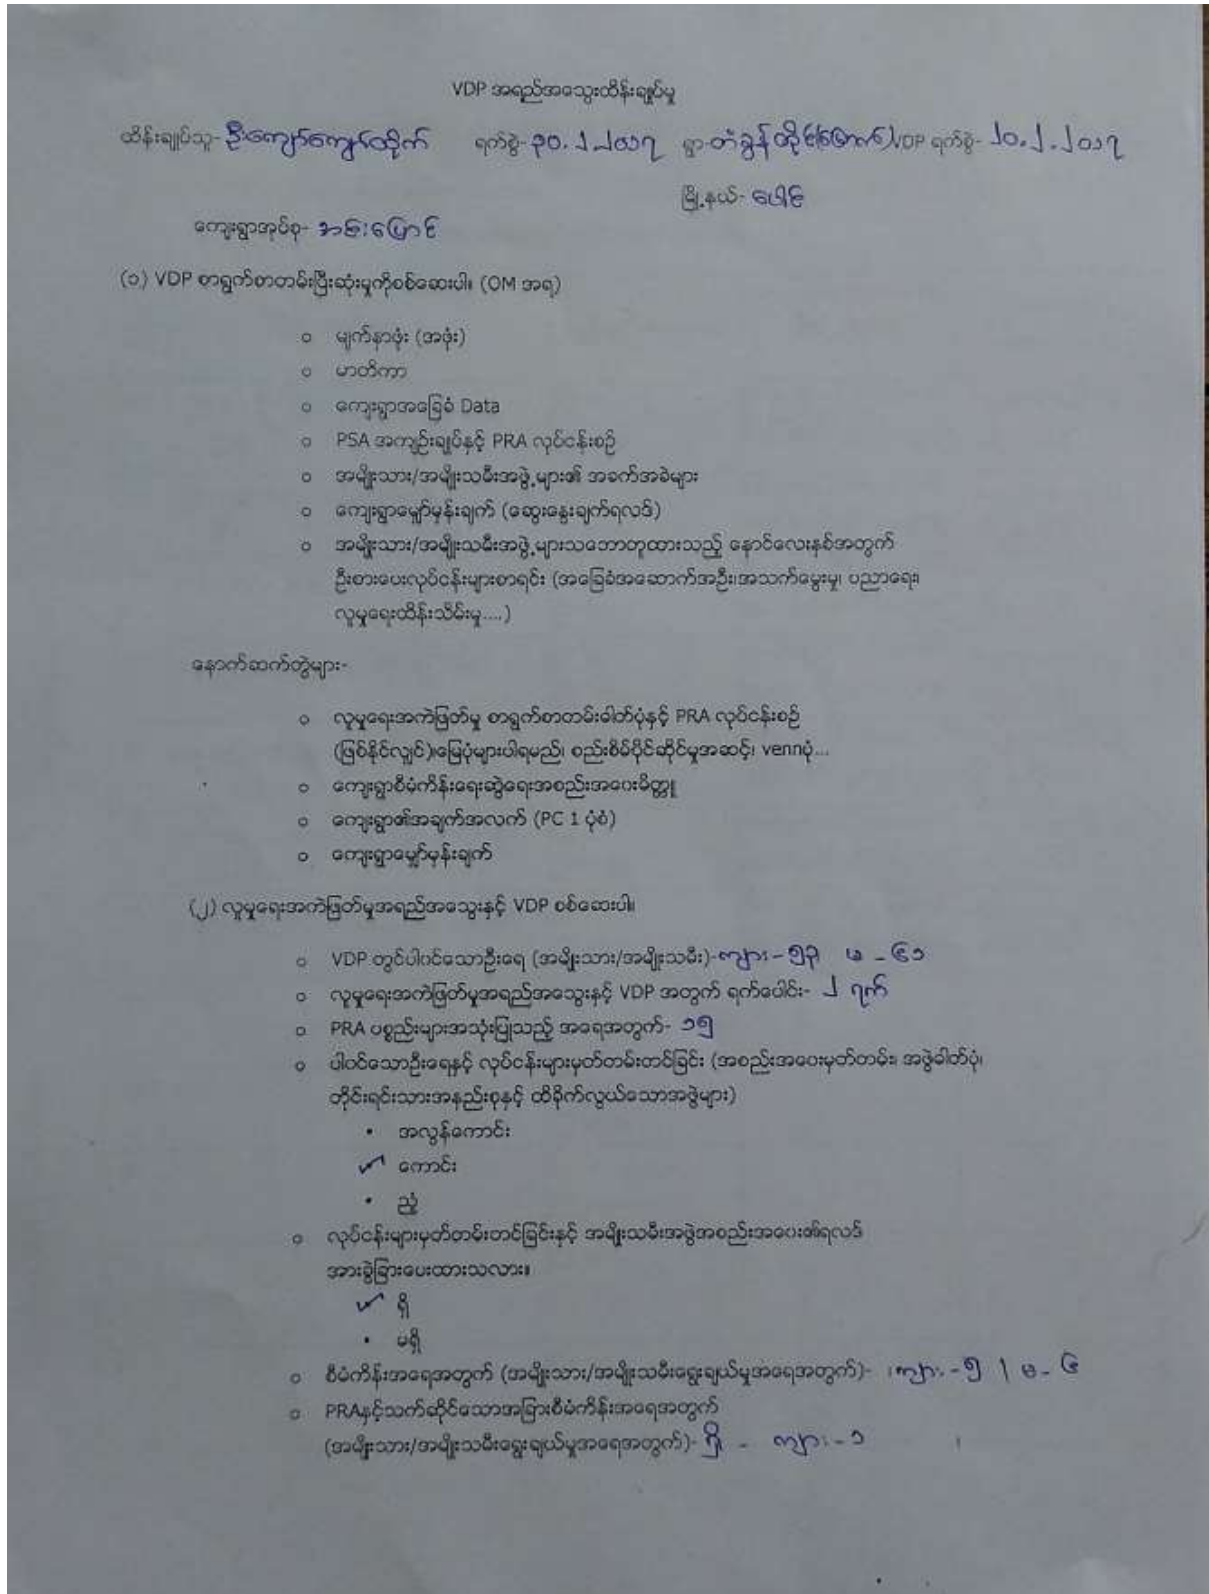 VDP အရည်အသွေးထိန်းချုပ်မှု
ထိန်းချုပ်သူ- ဦးကျော်ကျော်ထိုက် ရက်စွဲ- ၃၀.၂.၂၀၁၇ ရွာ-တံခွန်တိုင်(မြောက်) VDP ရက်စွဲ- ၂၀.၂.၂၀၁၇
မြို့နယ်- ပေါင်
ကျေးရွာအုပ်စု- အင်းပြောင်
(၁) VDP စာရွက်စာတမ်းပြီးဆုံးမှုကိုစစ်ဆေးပါ။ (OM အရ)
o မျက်နှာဖုံး (အဖုံး)
o မာတိကာ
o ကျေးရွာအခြေခံ Data
o PSA အကျဉ်းချုပ်နှင့် PRA လုပ်ငန်းစဉ်
o အမျိုးသား/အမျိုးသမီးအဖွဲ့များ၏ အခက်အခဲများ
o ကျေးရွာမျှော်မှန်းချက် (ဆွေးနွေးချက်ရလဒ်)
o အမျိုးသား/အမျိုးသမီးအဖွဲ့များသဘောတူထားသည့် နောင်လေးနှစ်အတွက်
ဦးစားပေးလုပ်ငန်းများစာရင်း (အခြေခံအဆောက်အဦး၊အသက်မွေးမှု၊ ပညာရေး၊
လူမှုရေးထိန်းသိမ်းမှု....)
နောက်ဆက်တွဲများ-
o လူမှုရေးအကဲဖြတ်မှု စာရွက်စာတမ်းဓါတ်ပုံနှင့် PRA လုပ်ငန်းစဉ်
(ဖြစ်နိုင်လျှင်)၊မြေပုံများပါရမည်၊ စည်းစိမ်ပိုင်ဆိုင်မှုအဆင့်၊ vennပုံ...
o ကျေးရွာစီမံကိန်းရေးဆွဲရေးအစည်းအဝေးမိတ္တူ
o ကျေးရွာ၏အချက်အလက် (PC 1 ပုံစံ)
o ကျေးရွာမျှော်မှန်းချက်
(၂) လူမှုရေးအကဲဖြတ်မှုအရည်အသွေးနှင့် VDP စစ်ဆေးပါ။
o VDP တွင်ပါဝင်သောဦးရေ (အမျိုးသား/အမျိုးသမီး)-ကျား - ၅၃၊ မ - ၆၁
o လူမှုရေးအကဲဖြတ်မှုအရည်အသွေးနှင့် VDP အတွက် ရက်ပေါင်း- ၂ ရက်
o PRA ပစ္စည်းများအသုံးပြုသည့် အရေအတွက်- ၁၅
o ပါဝင်သောဦးရေနှင့် လုပ်ငန်းများမှတ်တမ်းတင်ခြင်း (အစည်းအဝေးမှတ်တမ်း၊ အဖွဲဓါတ်ပုံ၊
တိုင်းရင်းသားအနည်းစုနှင့် ထိခိုက်လွယ်သောအဖွဲများ)
• အလွန်ကောင်း
✓ ကောင်း
• ညံ့
o လုပ်ငန်းများမှတ်တမ်းတင်ခြင်းနှင့် အမျိုးသမီးအဖွဲအစည်းအဝေး၏ရလဒ်
အားခွဲခြားပေးထားသလား။
✓ ရှိ
• မရှိ
o စီမံကိန်းအရေအတွက် (အမျိုးသား/အမျိုးသမီးရွေးချယ်မှုအရေအတွက်)- ကျား - ၅ | မ - ၆
o PRAနှင့်သက်ဆိုင်သောအခြားစီမံကိန်းအရေအတွက်
(အမျိုးသား/အမျိုးသမီးရွေးချယ်မှုအရေအတွက်)- ရှိ - ကျား - ၁